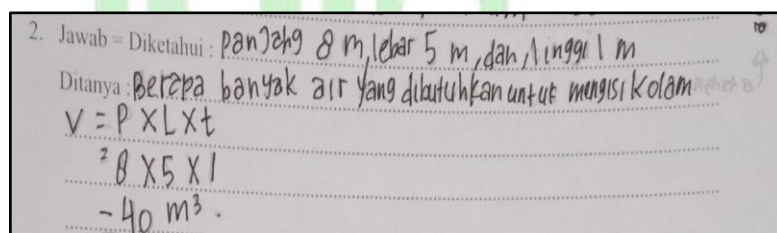 2. Jawab = Diketahui : panjang 8 m, lebar 5 m, dan, tinggi 1 m
Ditanya : Berapa banyak air yang dibutuhkan untuk mengisi kolam
V = P X L X t
= 8 X 5 X 1
- 40 m³.